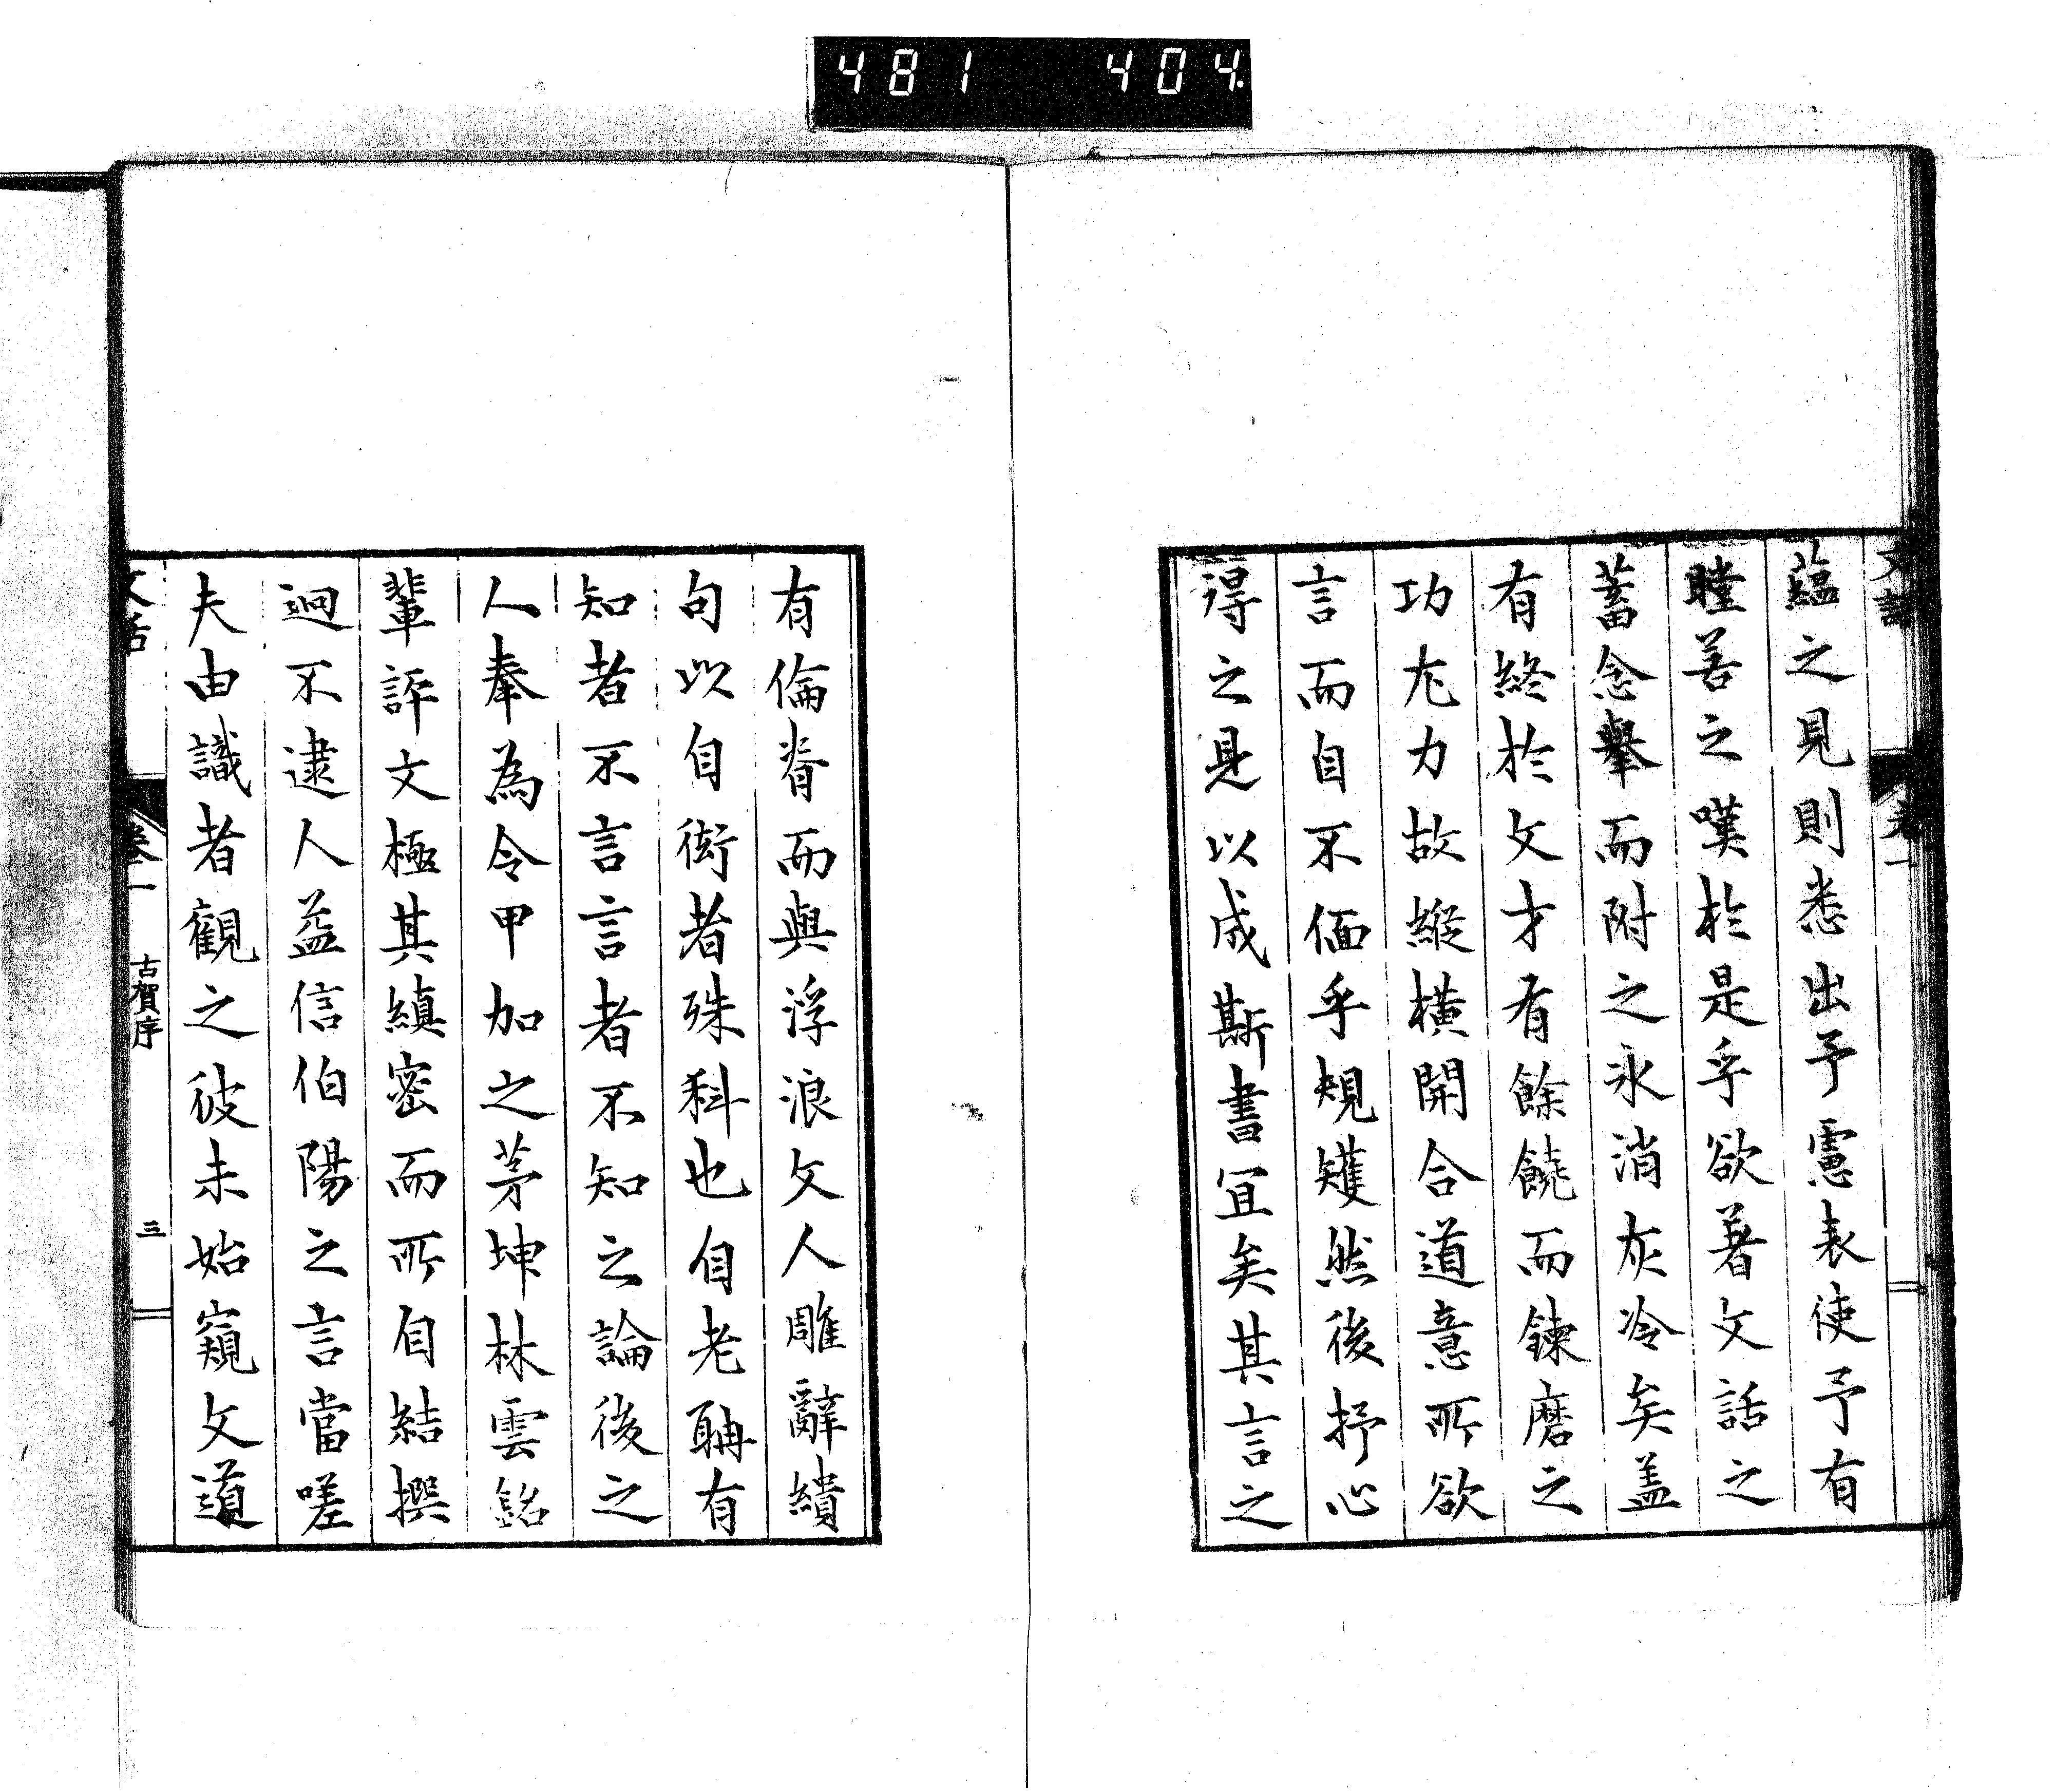 481 404.
文話 卷一
蘊之見則悉出予慮表使予有
瞠善之嘆於是乎欲著文話之
蓄念擧而附之氷消灰冷矣盖
有終於文才有餘饒而鍊磨之
功尤力故縱橫開合道意所欲
言而自不偭乎規矱然後抒心
得之是以成斯書宜矣其言之
有倫脊而與浮浪文人雕辭繢
句以自衒者殊科也自老聃有
知者不言言者不知之論後之
人奉為令甲加之茅坤林雲銘
輩評文極其縝密而所自結撰
迥不逮人益信伯陽之言當嗟
夫由識者觀之彼未始窺文道
文話 卷一 古賀序 三